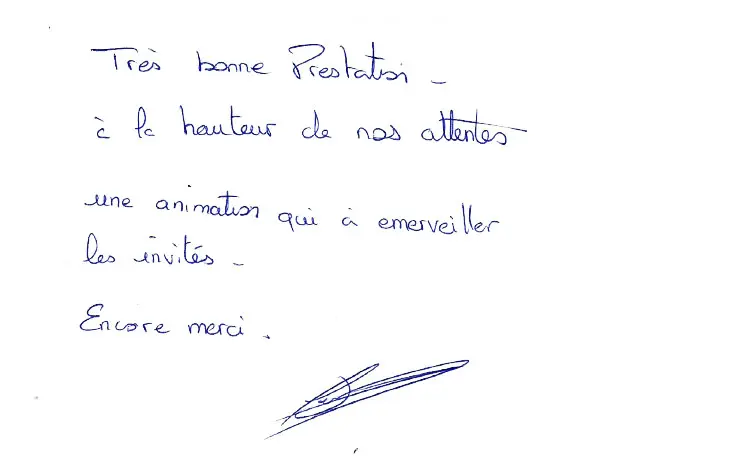 Très bonne Prestation -
à la hauteur de nos attentes
une animation qui à emerveiller
les invités -
Encore merci .